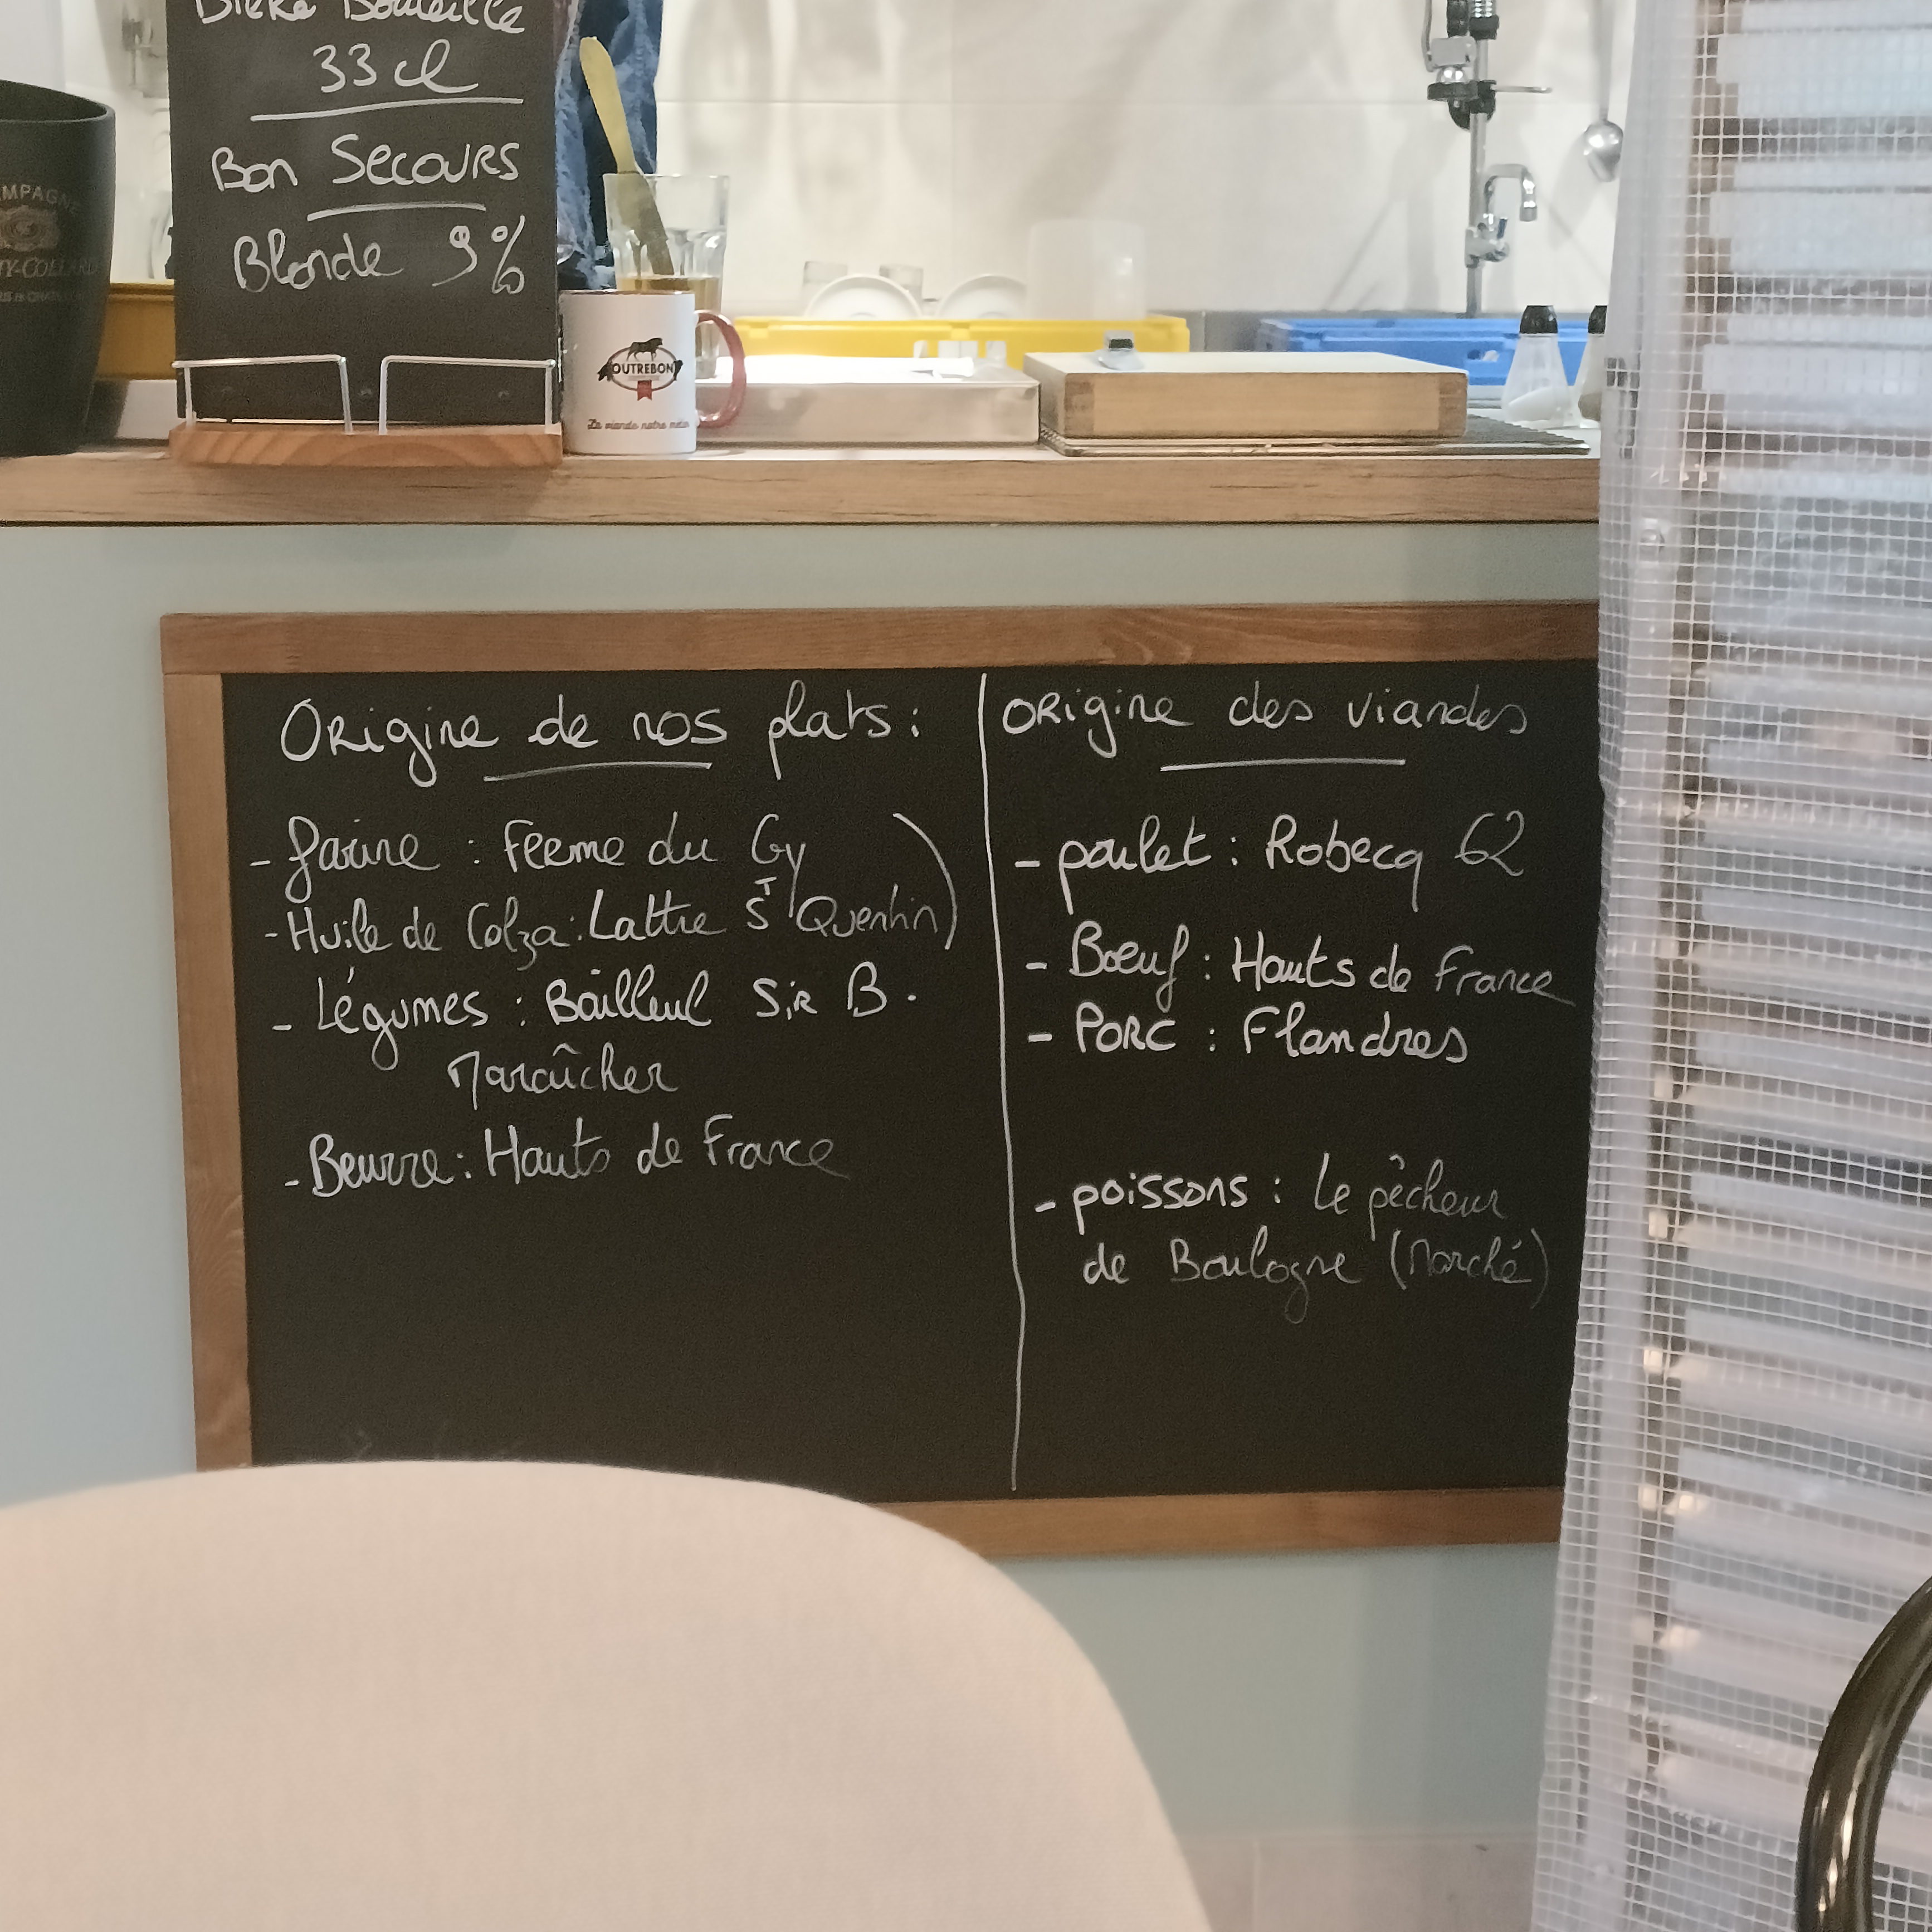 Bière Bouteille
33 cl
Bon Secours
Blonde 9%
OUTREBON
La viande notre métier
Origine de nos plats :
- farine : Ferme du Gy
- Huile de Colza : Lattre St Quentin)
- Légumes : Bailleul Sir B.
Maraîcher
- Beurre : Hauts de France
Origine des viandes
- poulet : Robecq 62
- Bœuf : Hauts de France
- PORC : Flandres
- poissons : Le pêcheur
de Boulogne (Marché)